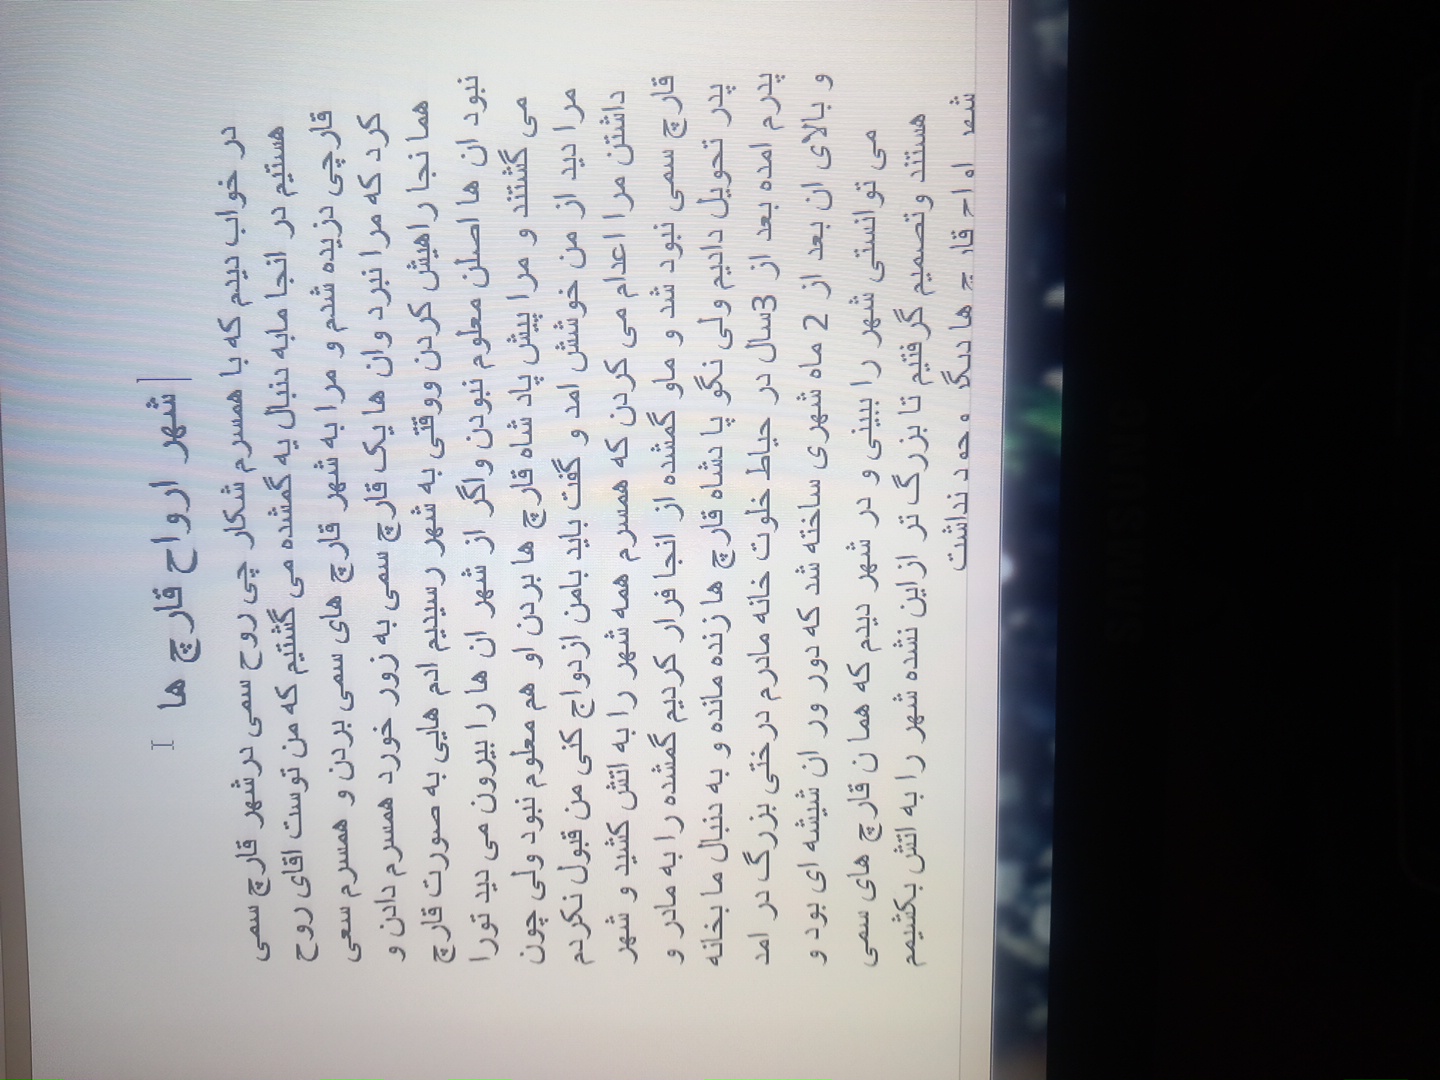 شهر ارواح قارچ ها
در خواب دیدم که با همسرم شکار چی روح سمی درشهر قارچ سمی
هستیم در انجا مابه دنبال یه گمشده می گشتیم که من توست اقای روح
قارچی دزیده شدم و مرا به شهر قارچ های سمی بردن و همسرم سعی
کرد که مرا نبرد وان ها یک قارچ سمی به زور خورد همسرم دادن و
هما نجا راهیش کردن ووقتی به شهر رسیدیم ادم هایی به صورت قارچ
نبود ان ها اصلن معلوم نبودن واگر از شهر ان ها را بیرون می دید تورا
می گشتند و مرا پیش پاد شاه قارچ ها بردن او هم معلوم نبود ولی چون
مرا دید از من خوشش امد و گفت باید بامن ازدواج کنی من قبول نکردم
داشتن مرا اعدام می کردن که همسرم همه شهر را به اتش کشید و شهر
قارچ سمی نبود شد و ماو گمشده از انجا فرار کردیم گمشده را به مادر و
پدر تحویل دادیم ولی نگو پا دشاه قارچ ها زنده مانده و به دنبال ما بخانه
پدرم امده بعد از 3سال در حیاط خلوت خانه مادرم درختی بزرگ در امد
و بالای ان بعد از 2 ماه شهری ساخته شد که دور ور ان شیشه ای بود و
می توانستی شهر را ببینی و در شهر دیدم که هما ن قارچ های سمی
هستند وتصمیم گرفتیم تا بزرگ تر ازاین نشده شهر را به اتش بکشیمم
شهر ارواح قارچ ها دیگر وجود نداشت
SAMSUNG